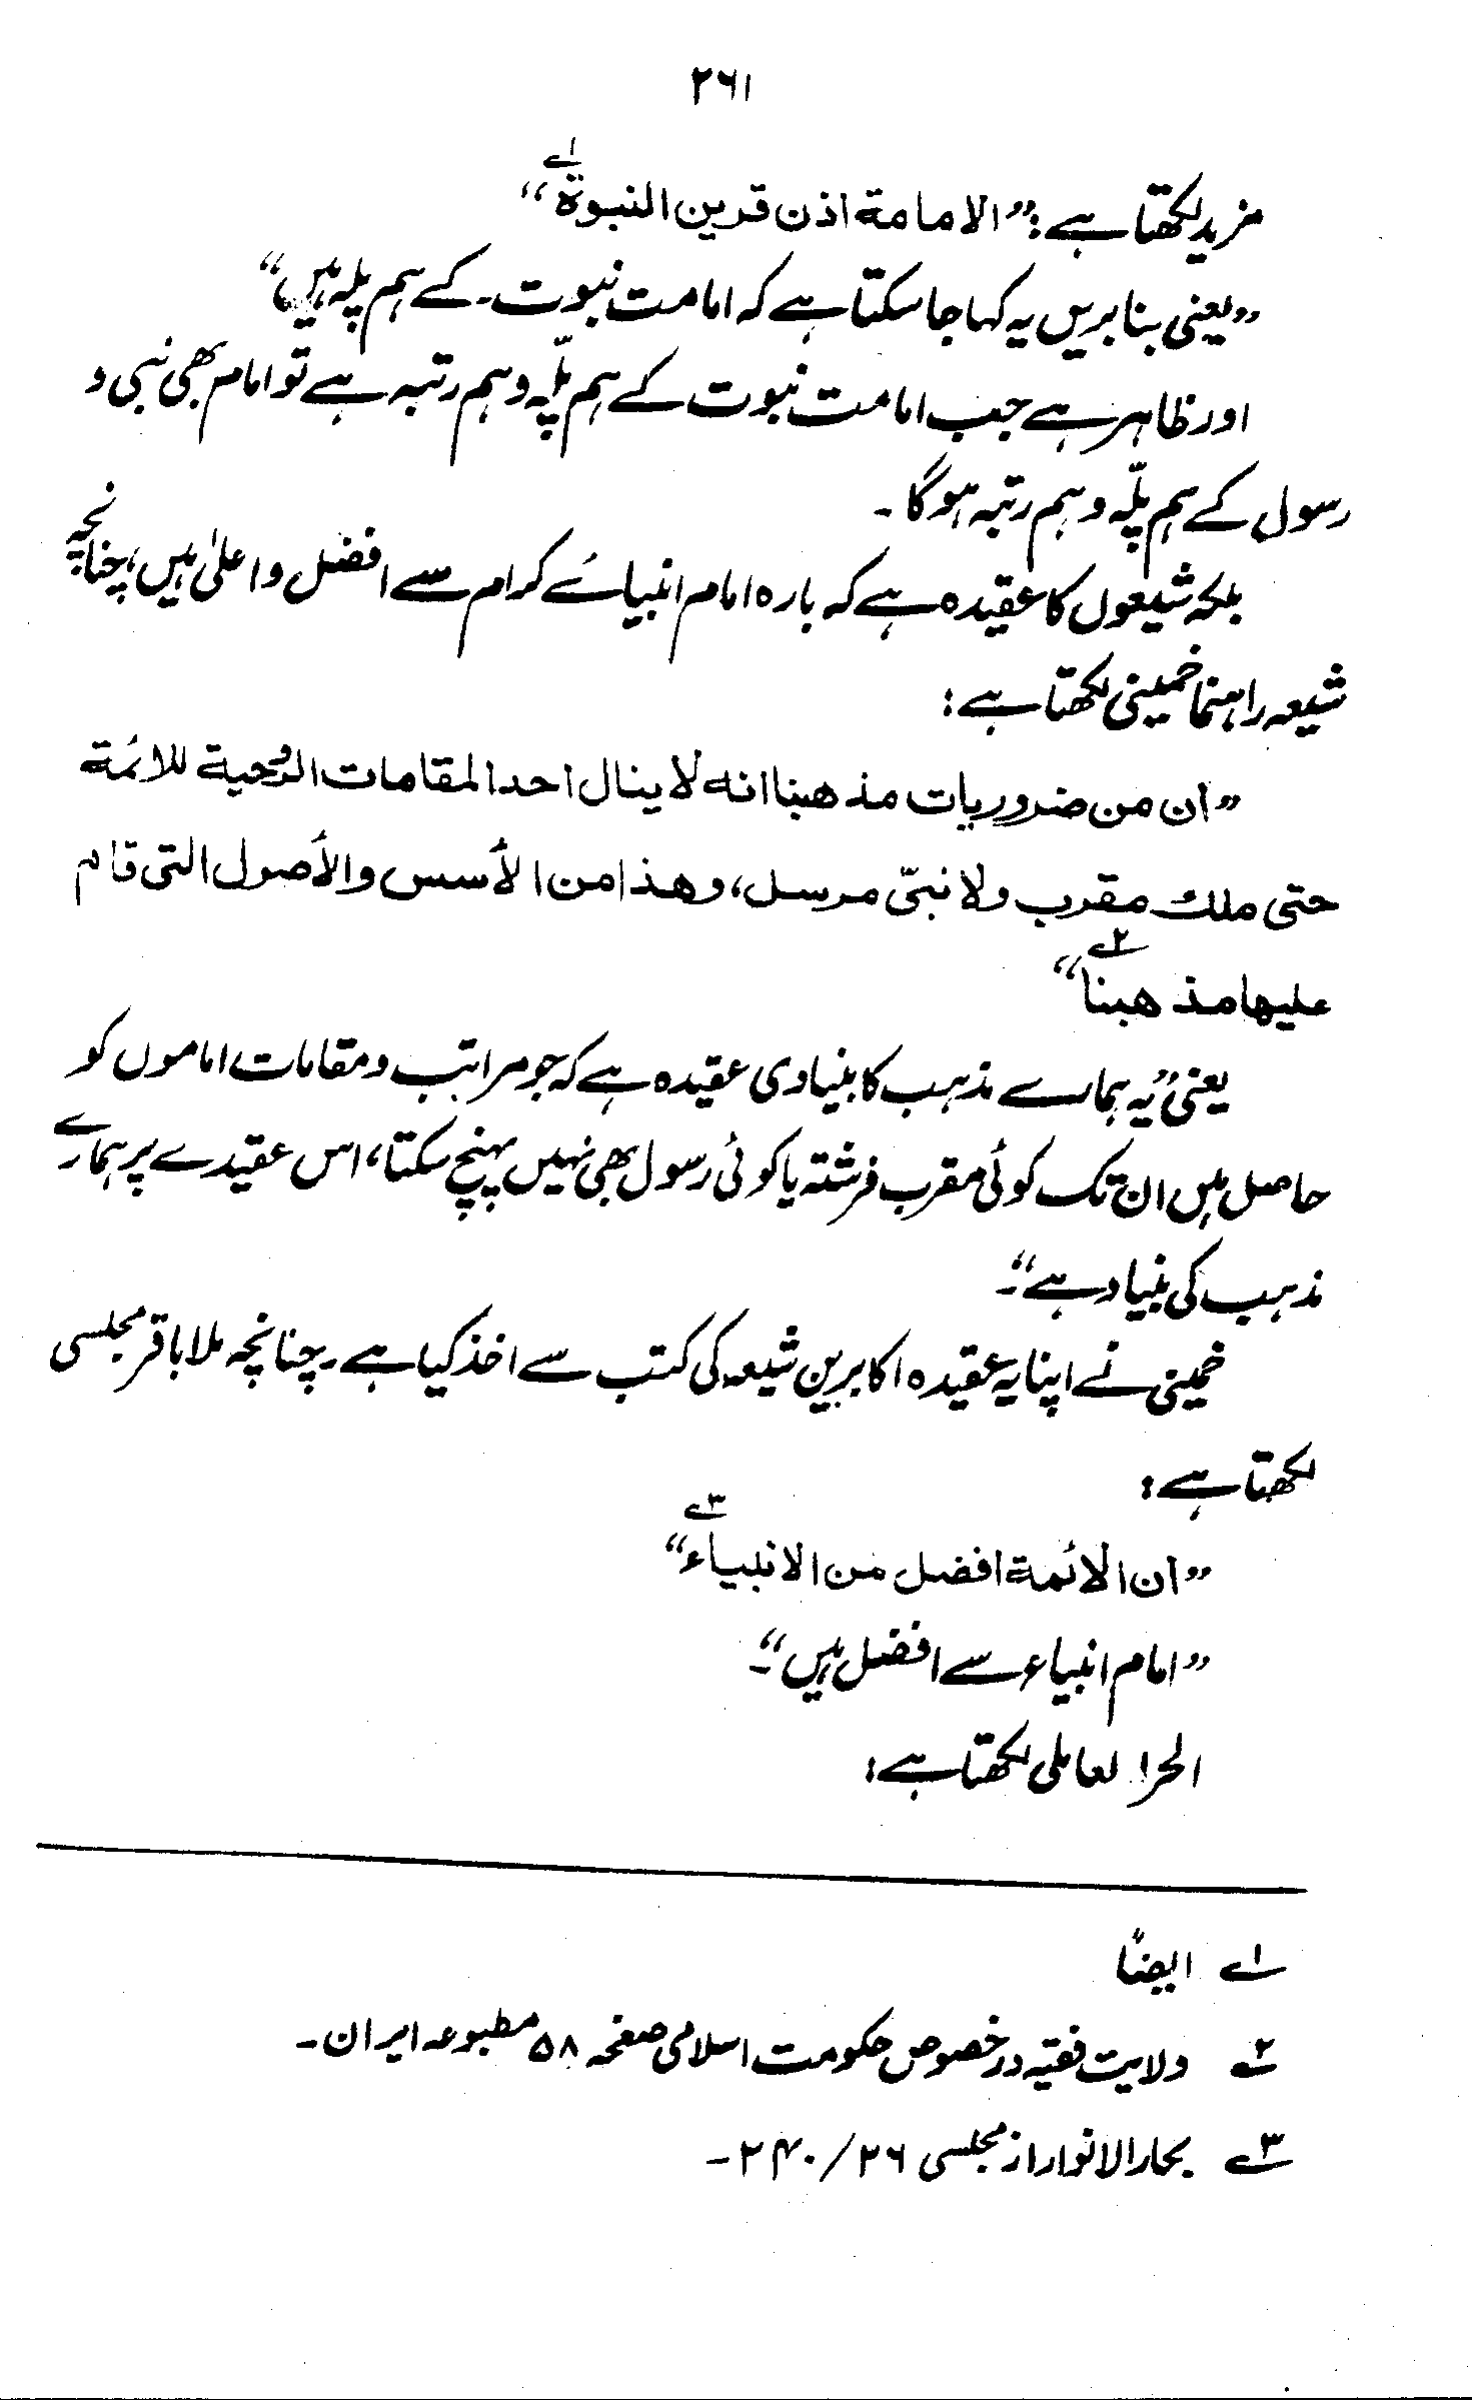 ۲۶۱
مزید لکھتا ہے: ”الامامة اذن قرین النبوة“ ۱ے
”یعنی بنابریں یہ کہا جا سکتا ہے کہ امامت نبوت۔ کے ہم پلہ ہیں“
اور ظاہر ہے جب امامت نبوت کے ہم پلّہ و ہم رتبہ ہے تو امام بھی نبی و
رسول کے ہم پلّہ و ہم رتبہ ہوگا۔
بلکہ شیعوں کا عقیدہ ہے کہ بارہ امام انبیائے کرام سے افضل و اعلیٰ ہیں، چنانچہ
شیعہ راہنما خمینی لکھتا ہے:
”ان من ضروریات مذهبنا انه لا ینال احد المقامات الروحیة للائمة
حتی ملك مقرب ولا نبیّ مرسل، وهذا من الأسس والأصول التی قام
علیها مذهبنا“ ۲ے
یعنی ”یہ ہمارے مذہب کا بنیادی عقیدہ ہے کہ جو مراتب و مقامات اماموں کو
حاصل ہیں ان تک کوئی مقرب فرشتہ یا کوئی رسول بھی نہیں پہنچ سکتا، اس عقیدے پر ہمارے
مذہب کی بنیاد ہے“۔
خمینی نے اپنا یہ عقیدہ اکابرین شیعہ کی کتب سے اخذ کیا ہے۔ چنانچہ ملا باقر مجلسی
لکھتا ہے:
”ان الائمة افضل من الانبیاء“ ۳ے
”امام انبیاء سے افضل ہیں“۔
الحر العاملی لکھتا ہے:
۱ے ایضاً
۲ے ولایت فقیہ در خصوص حکومت اسلامی صفحہ ۵۸ مطبوعہ ایران۔
۳ے بحار الانوار از مجلسی ۲۶/۲۴۰۔